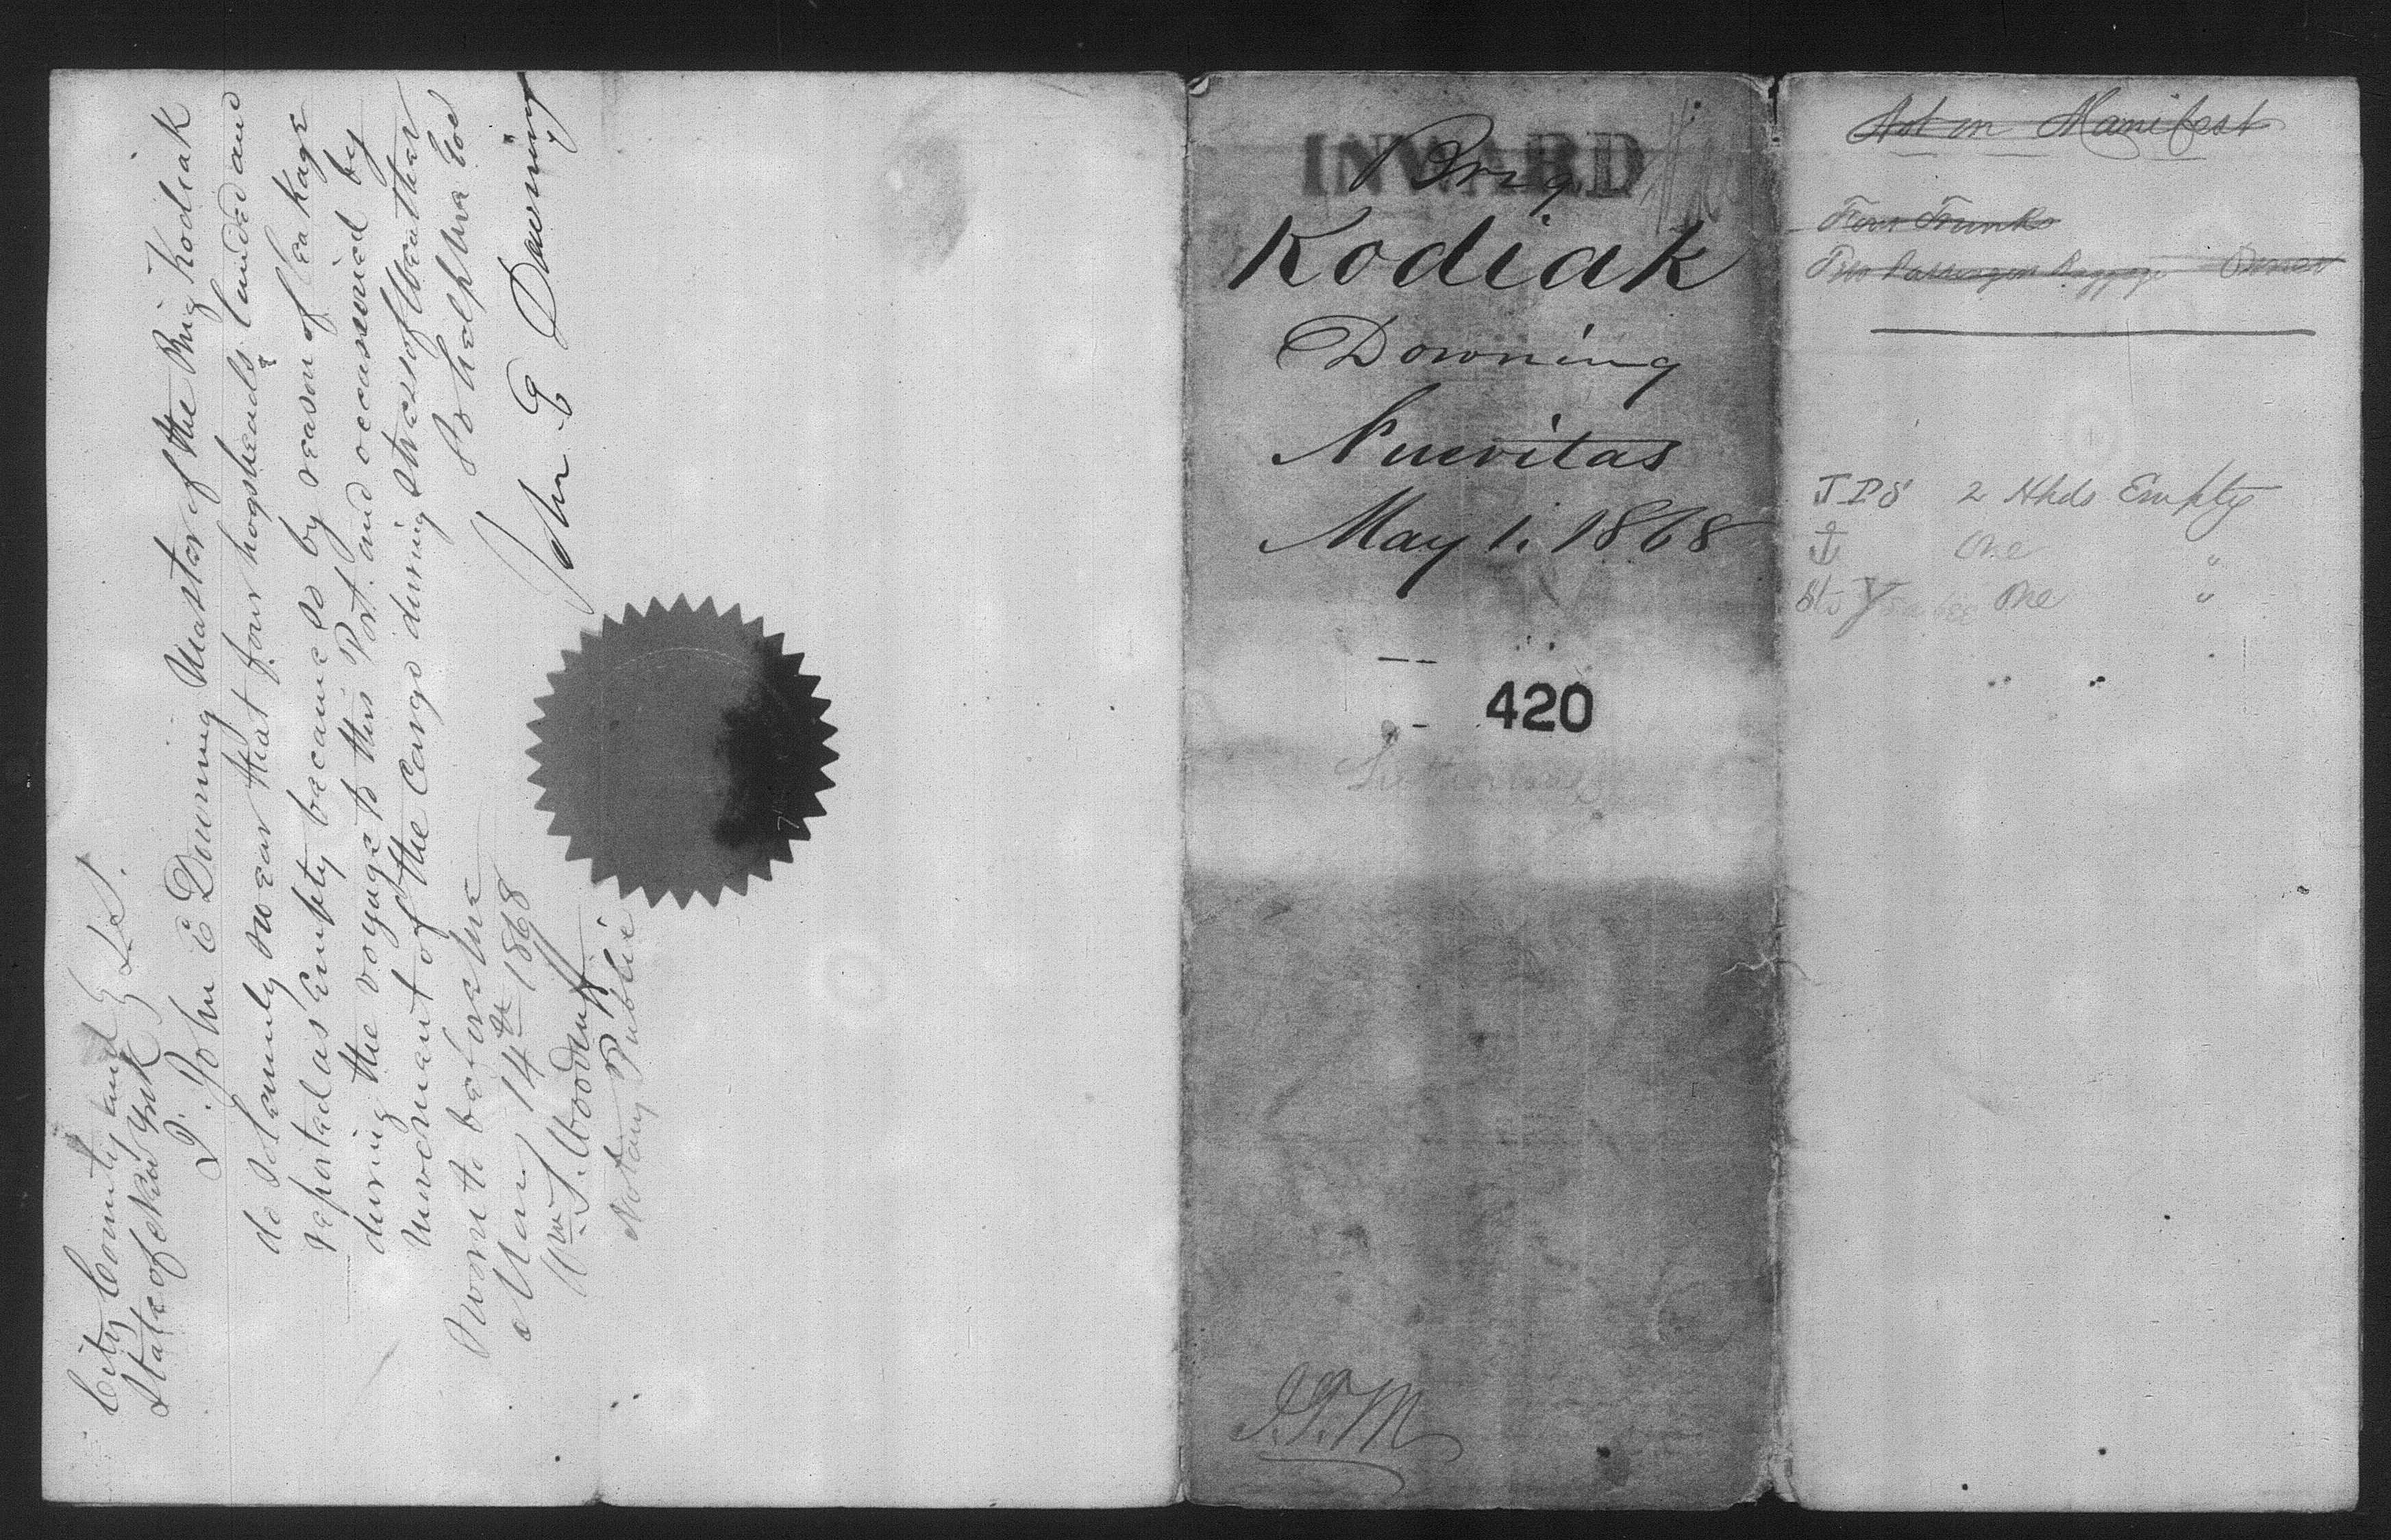 City County and } S.S.
State of New York }
I. John E Downing Master of the Brig Kodiak
do solemnly swear that four hogsheads landed and
reported as Empty became so by reason of leakage
during the voyage to this Port. and occasioned by
movement of the Cargo during stress of weather
So help me God
John E Downing
Sworn to before me
May 14th 1868
Wm S. Woodruff
Notary Public
INWARD
Brig
Kodiak
Downing
Nuevitas
May 1. 1868
420
J.T.M
Not on Manifest
Four Trunks
Passengers Baggage Owner
JPS 2 Hhds Empty
One "
One "